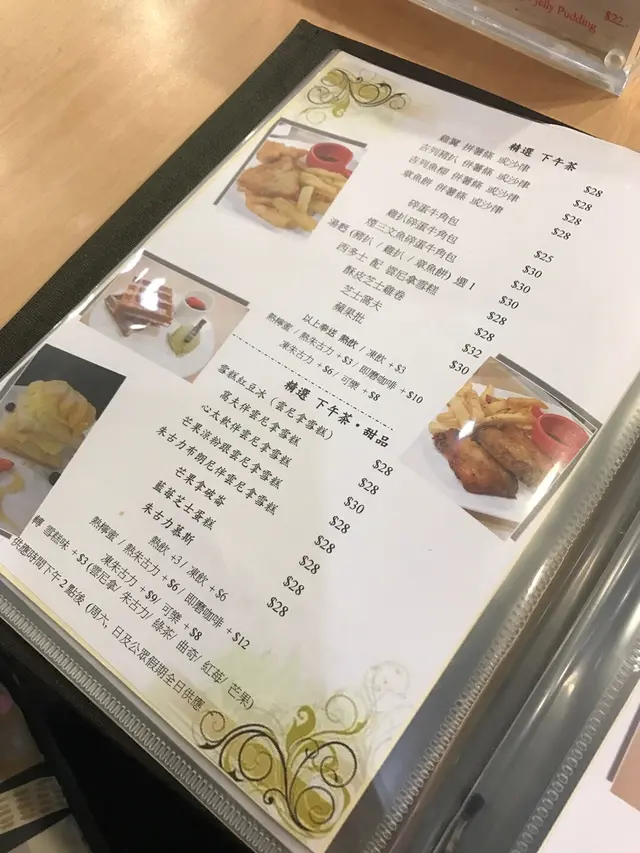 jelly Pudding $22.-
精選 下午茶
雞翼 併薯條 或沙律 $28
吉列豬扒 併薯條 或沙律 $28
吉列魚柳 併薯條 或沙律 $28
章魚餅 併薯條 或沙律 $28
碎蛋牛角包 $25
雞扒碎蛋牛角包 $30
煙三文魚碎蛋牛角包 $30
湯麵 (豬扒 / 雞扒 / 章魚餅) 選 1 $30
西多士 配 雲尼拿雪糕 $28
酥皮芝士雞卷 $28
芝士窩夫 $32
蘋果批 $30
以上奉送 熱飲 / 凍飲 +$3
熱檸蜜 / 熱朱古力 +$3 / 即磨咖啡 +$10
凍朱古力 +$6 / 可樂 +$8
精選 下午茶・甜品
雪糕紅豆冰 (雲尼拿雪糕) $28
窩夫伴雲尼拿雪糕 $28
心太軟伴雲尼拿雪糕 $30
芒果涼粉跟雲尼拿雪糕 $28
朱古力布朗尼伴雲尼拿雪糕 $28
芒果拿破崙 $28
藍莓芝士蛋糕 $28
朱古力慕斯 $28
熱飲 +3 / 凍飲 +$6
熱檸蜜 / 熱朱古力 +$6 / 即磨咖啡 +$12
凍朱古力 +$9 / 可樂 +$8
轉 雪糕味 +$3 (雲尼拿/ 朱古力/ 綠茶/ 曲奇/ 紅莓/ 芒果)
供應時間下午2點後 (周六、日及公眾假期全日供應)